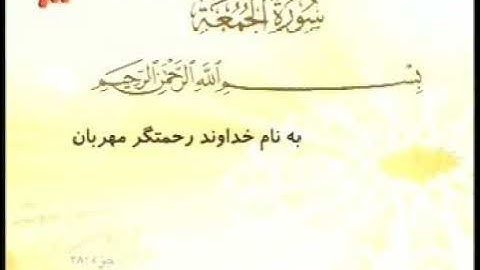 سُورَةُ الجُمُعَة
بِسْمِ اللَّهِ الرَّحْمَٰنِ الرَّحِيمِ
به نام خداوند رحمتگر مهربان
جزء ۲۸